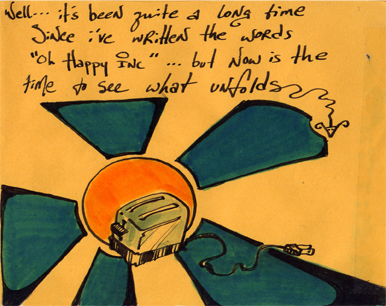 Well... it's been quite a long time
Since i've written the words
"Oh Happy Inc"... but Now is the
time to see what unfolds